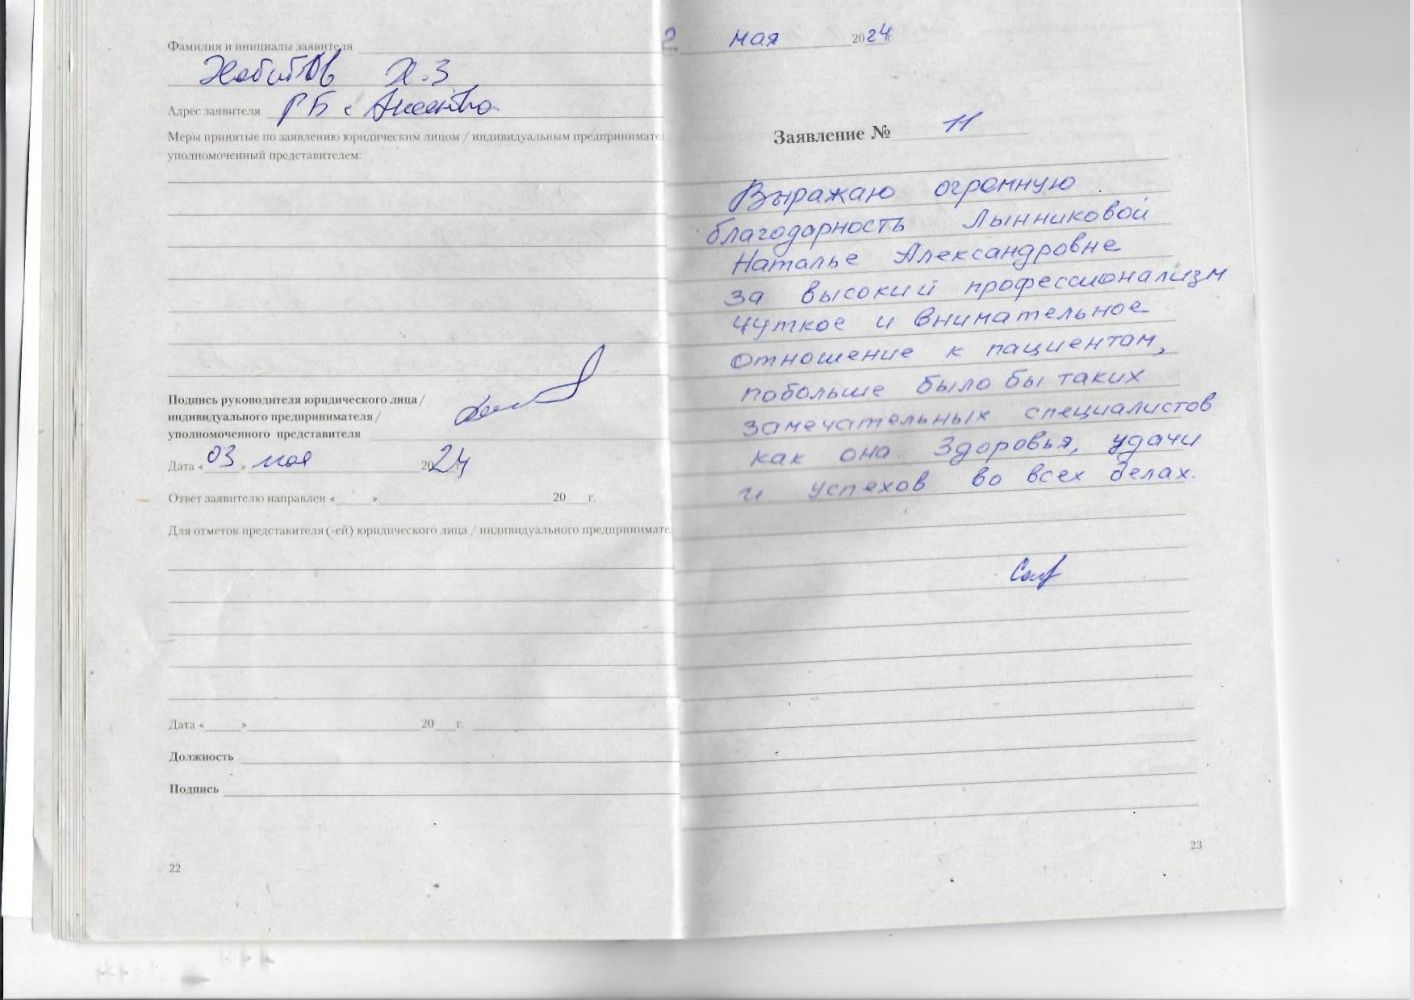 Фамилия и инициалы заявителя
Хабитов Х.З
Адрес заявителя РБ с
Меры принятые по заявлению юридическим лицом / индивидуальным предпринимате
уполномоченный представителем:
Подпись руководителя юридического лица /
индивидуального предпринимателя /
уполномоченного представителя
Дата «03 » мая 2024
Ответ заявителю направлен « » 20 г.
Для отметок представителя (-ей) юридического лица / индивидуального предпринимате
Дата « » 20 г.
Должность
Подпись
22
2 мая 2024
Заявление № 11
Выражаю огромную
благодарность Лынниковой
Наталье Александровне
за высокий профессионализм
чуткое и внимательное
отношение к пациентам,
побольше было бы таких
замечательных специалистов
как она. Здоровья, удачи
и успехов во всех делах.
23